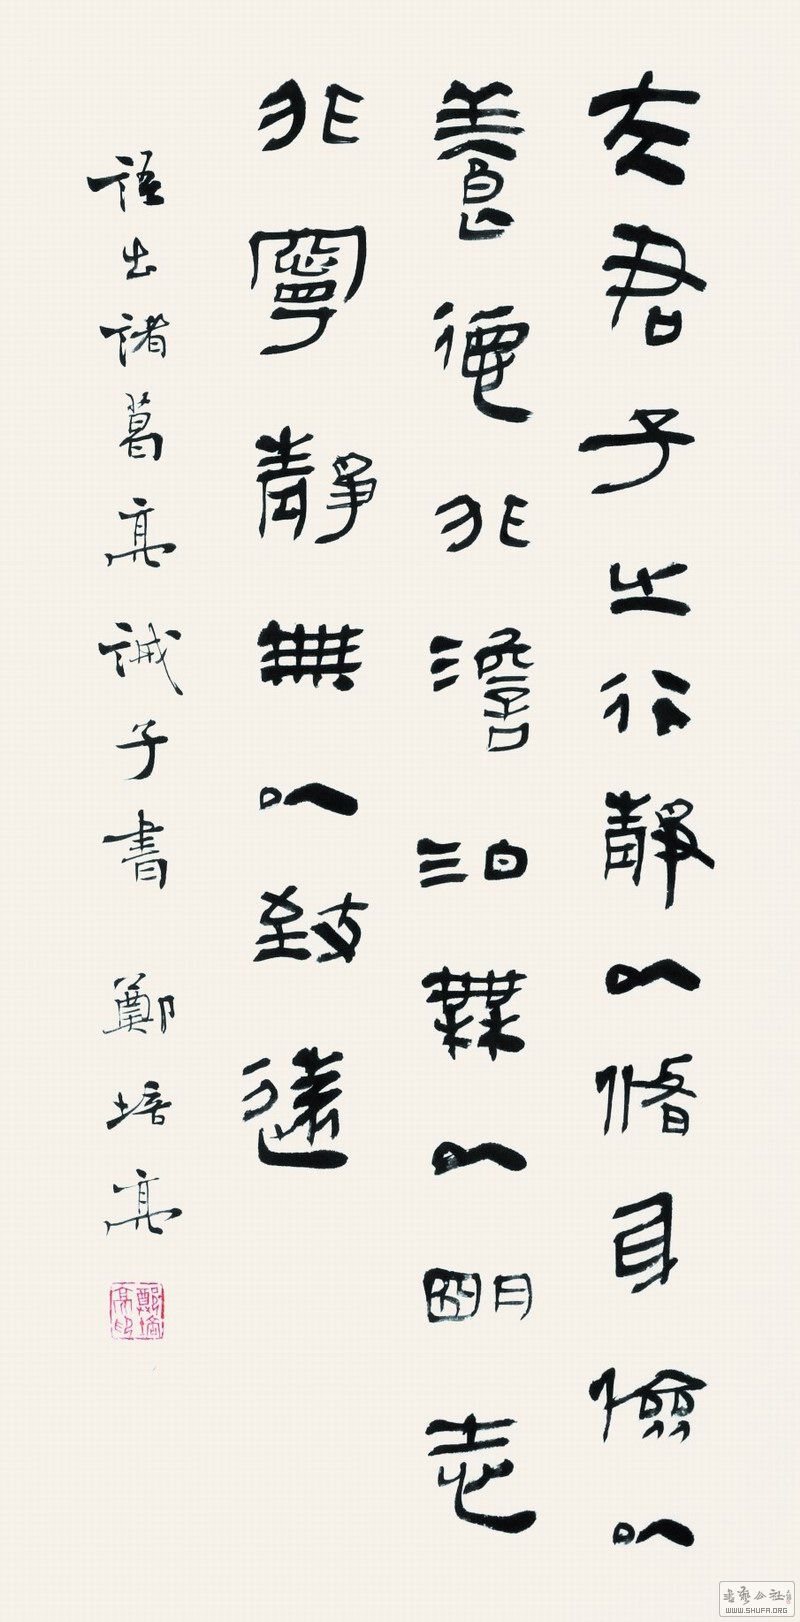 夫君子之行靜以脩身儉以
養德非澹泊無以明志
非寧靜無以致遠
語出諸葛亮誡子書 鄭培亮
鄭培亮印
書藝公社
WWW.SHUFA.ORG